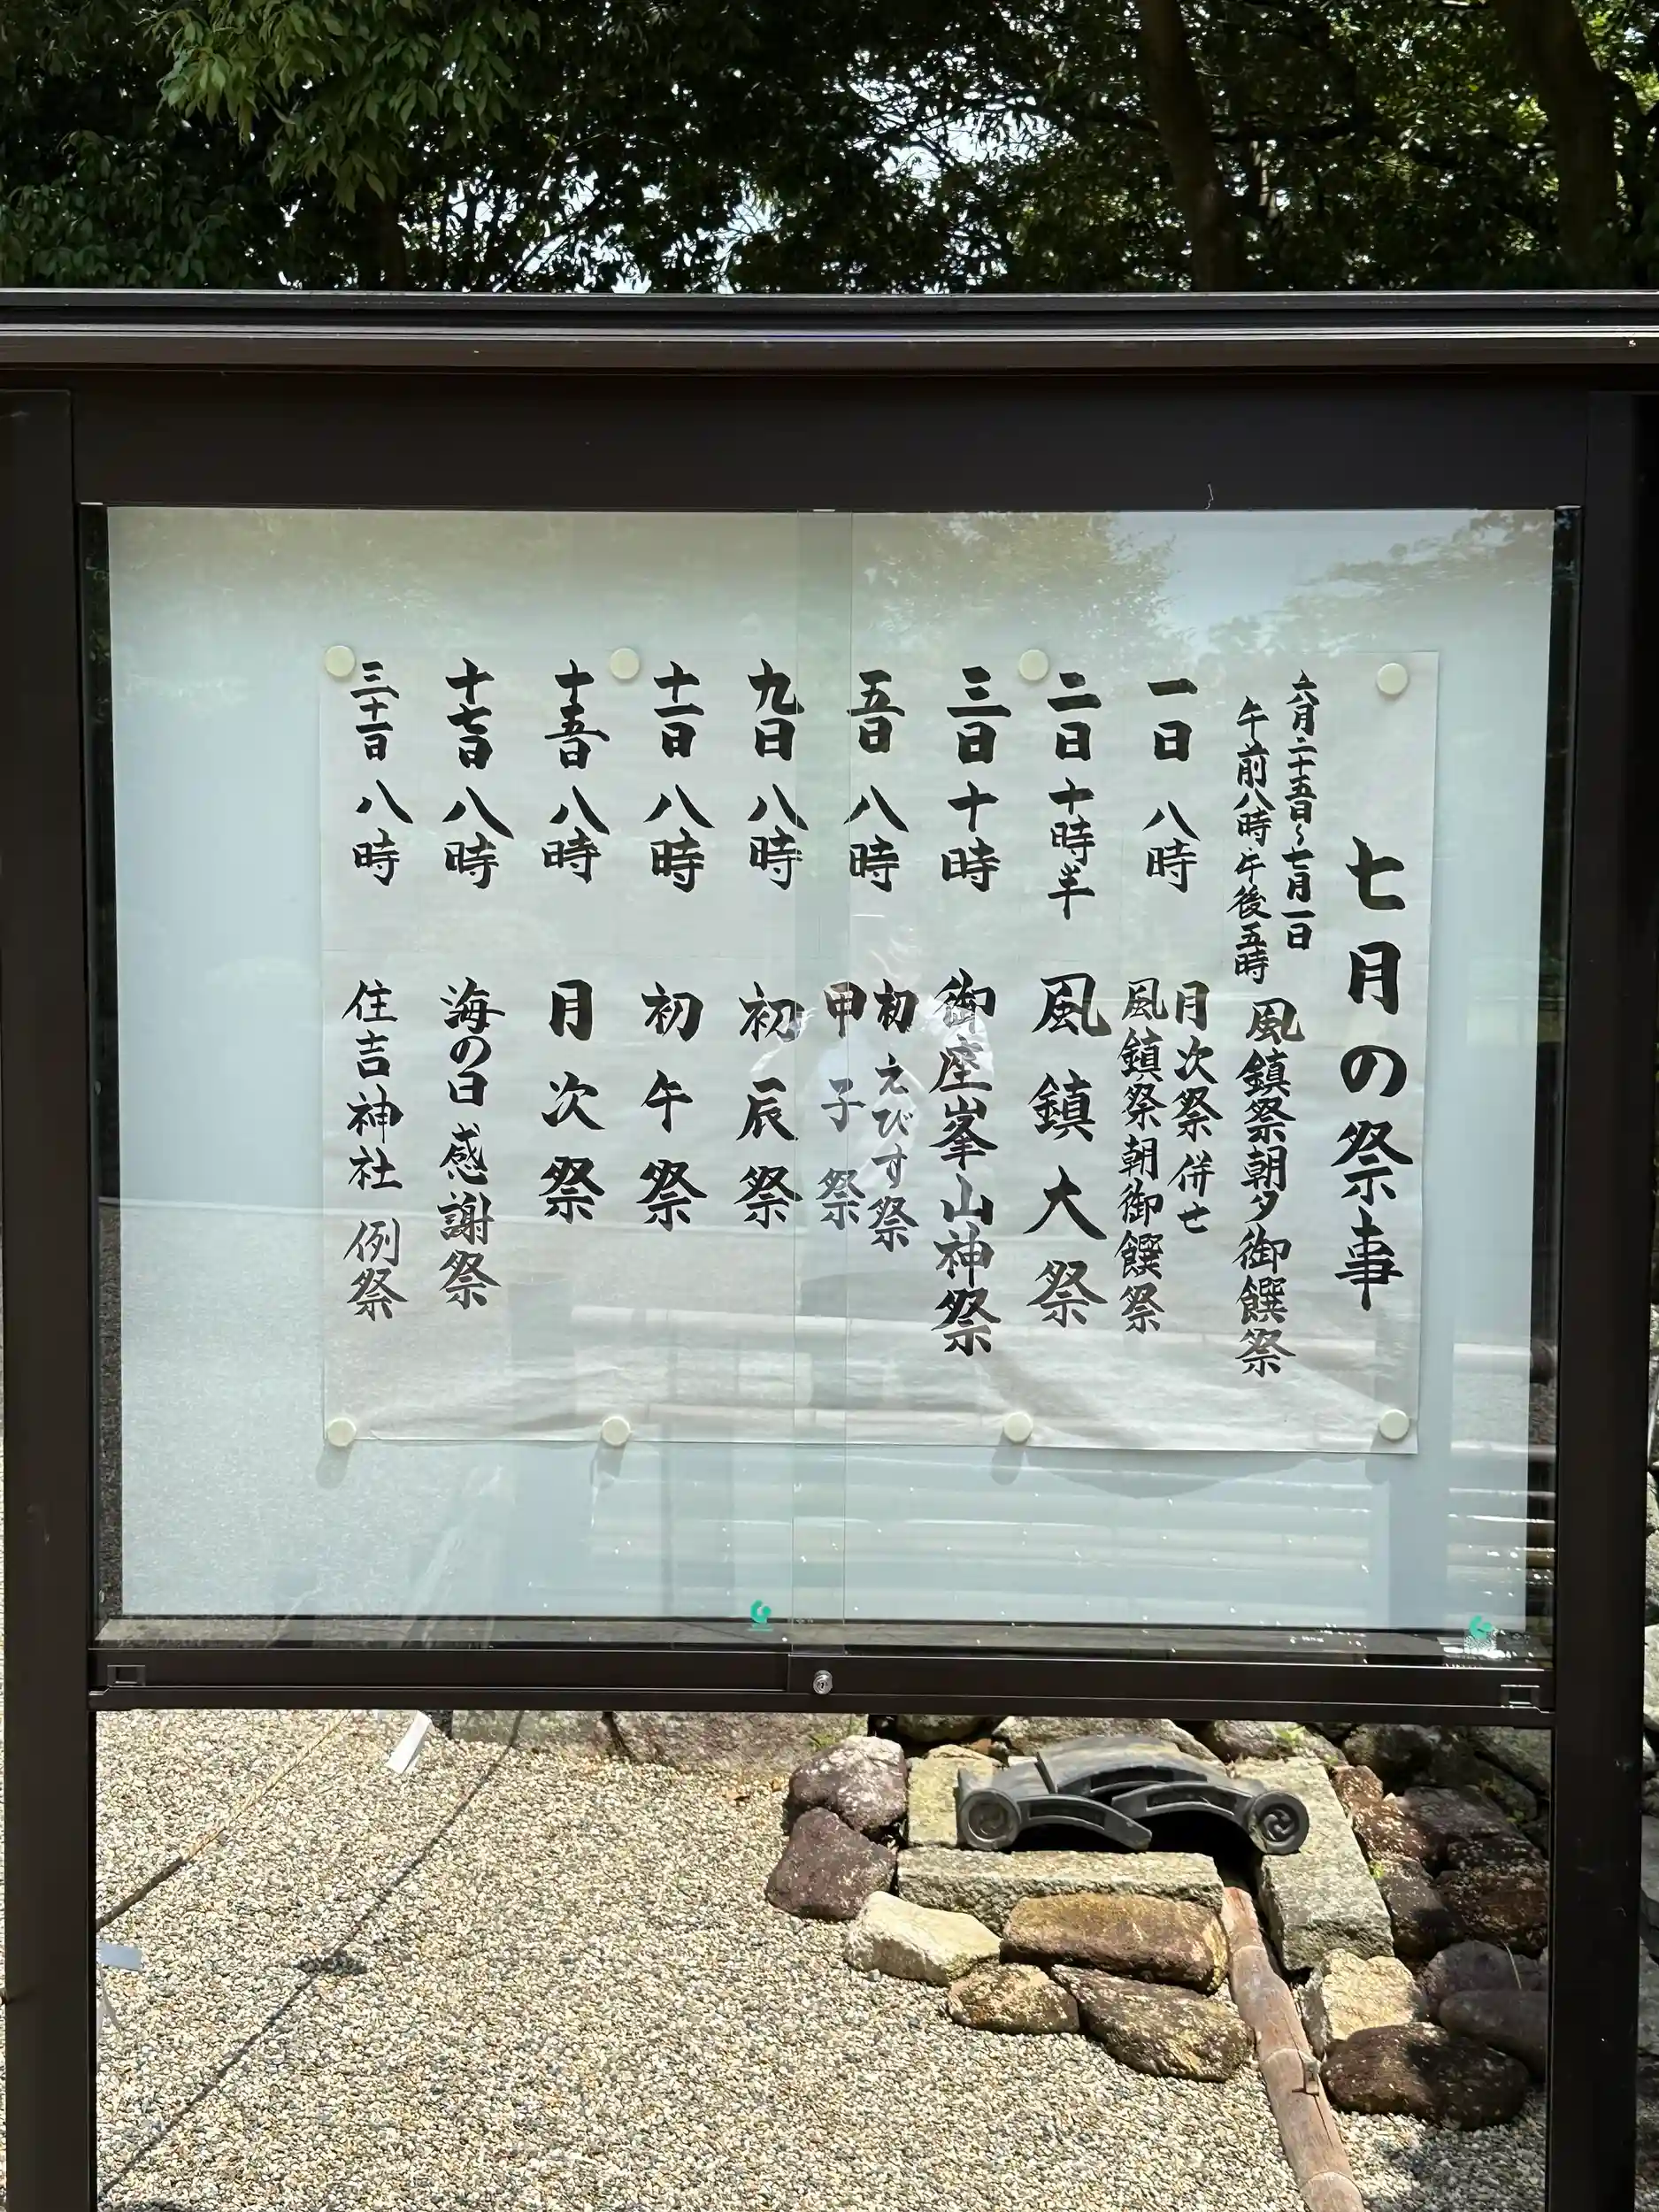 七月の祭事
六月二十五日〜七月一日
午前八時 午後五時
風鎮祭朝夕御饌祭
一日 八時
月次祭 併せ
風鎮祭朝御饌祭
二日 十時半 風鎮大祭
三日 十時 御座峯山神祭
五日 八時
初えびす祭
甲子祭
九日 八時 初辰祭
十一日 八時 初午祭
十五日 八時 月次祭
十七日 八時 海の日感謝祭
三十一日 八時 住吉神社 例祭